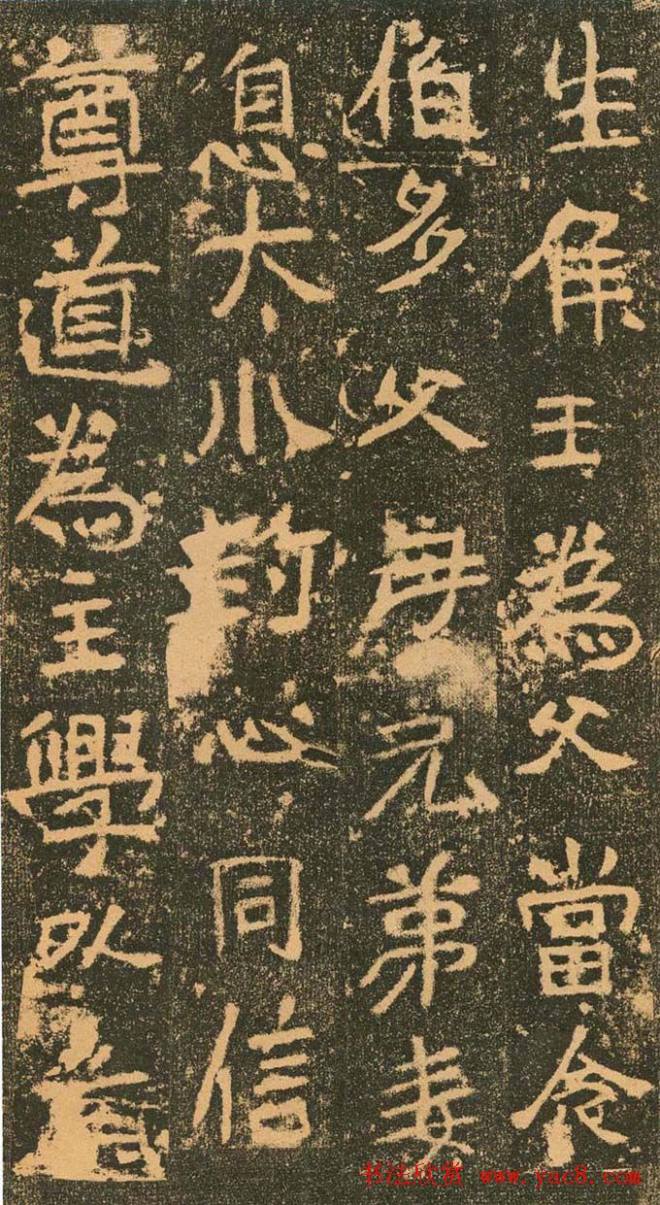 生侯王為父當念
伯多父母兄弟妻
息大小心同信
尊道為主學以
书法欣赏 www.yac8.com